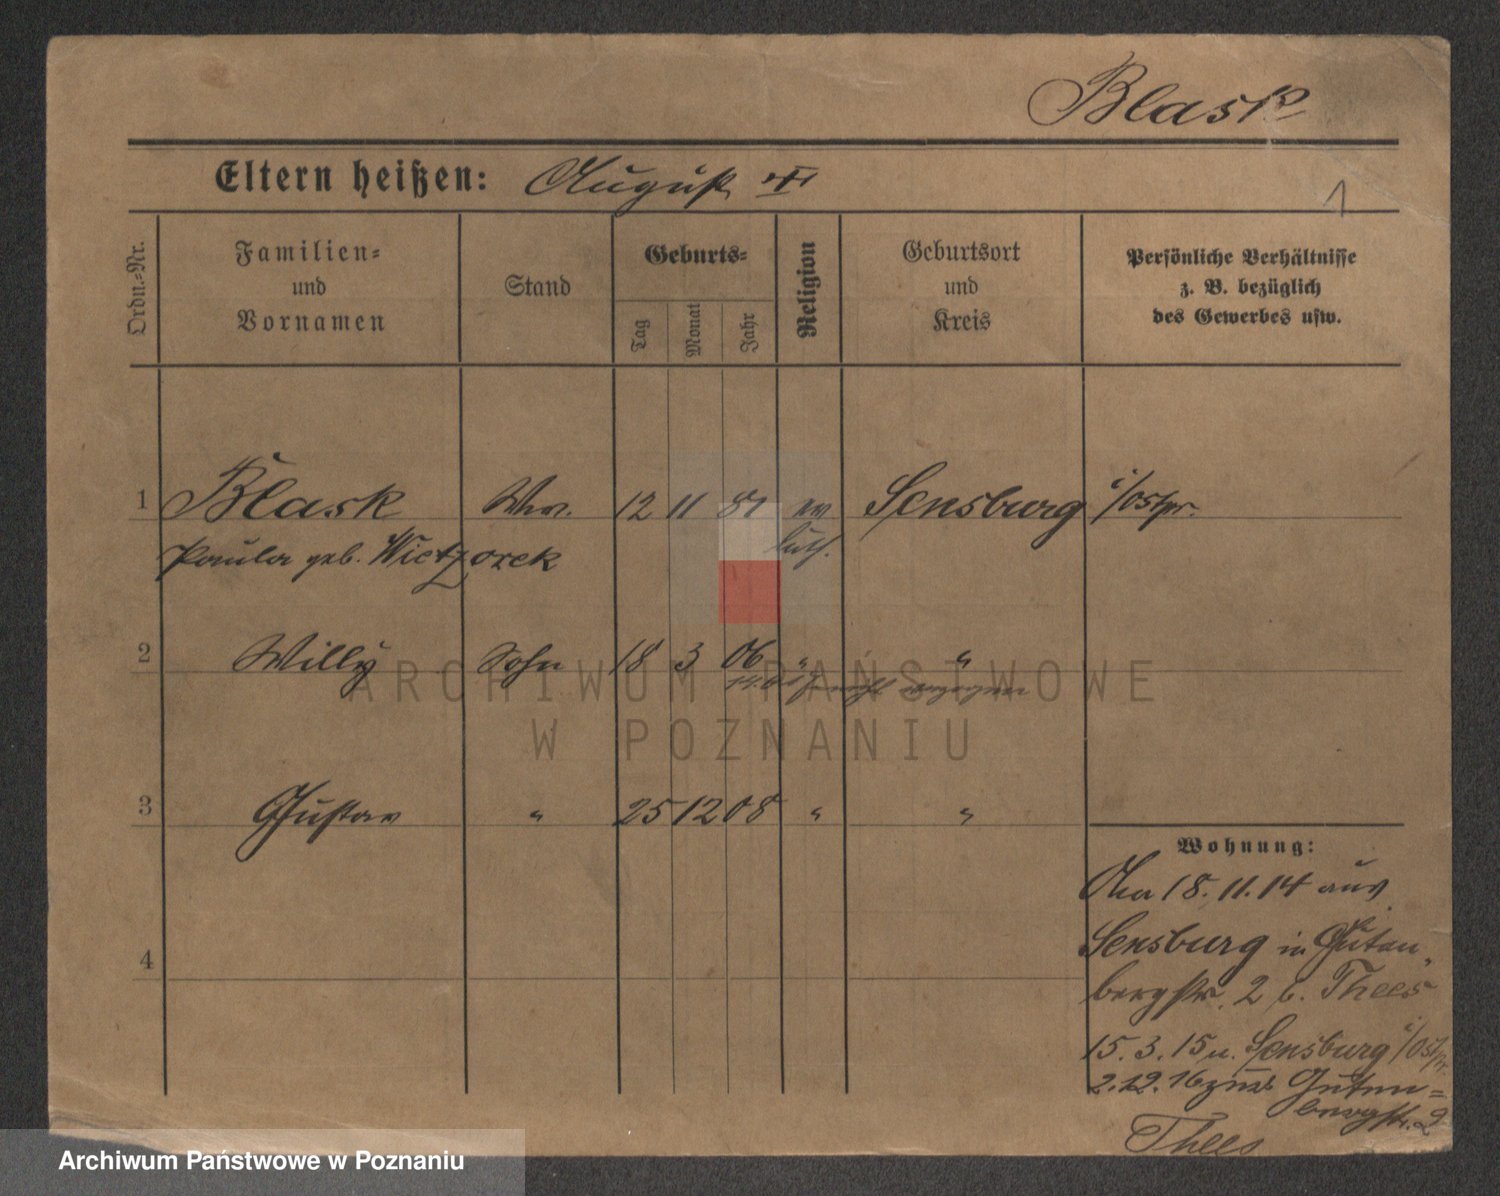 Blask
Eltern heißen: August
1
Ordn.-Nr.
Familien-
und
Vornamen
Stand
Geburts-
Tag
Monat
Jahr
Religion
Geburtsort
und
Kreis
Persönliche Verhältnisse
z. B. bezüglich
des Gewerbes usw.
1 Blask Ww. 12 11 81 ev Sensburg i/Ostpr.
luth.
Paula geb. Wietzorek
2 Willy Sohn 18 3 06 " "
nicht zugezogen
3 Gustav " 25 12 08 " "
4
Wohnung:
Am 18. 11. 14 aus
Sensburg in Guten-
bergstr. 2 b. Thees
15. 3. 15 n. Sensburg i/Ostpr.
2. 12. 16 zur. Guten=
bergstr. 2
Thees
ARCHIWUM PAŃSTWOWE
W POZNANIU
Archiwum Państwowe w Poznaniu